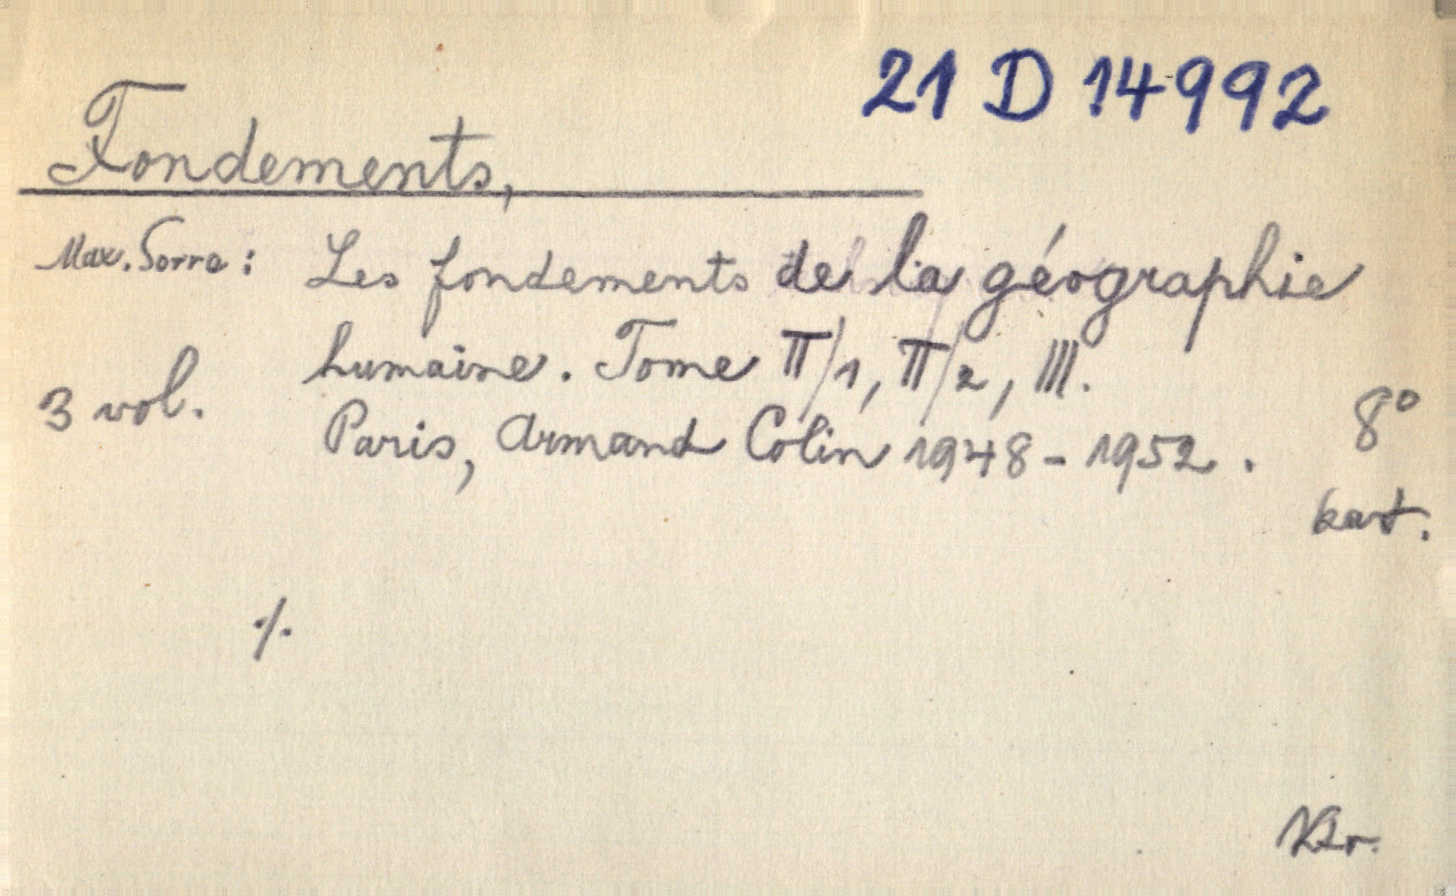 21 D 14992
Fondements,
Max. Sorre: Les fondements de la géographie
humaine. Tome II/1, II/2, III.
3 vol.
Paris, Armand Colin 1948-1952.
8°
kart.
./.